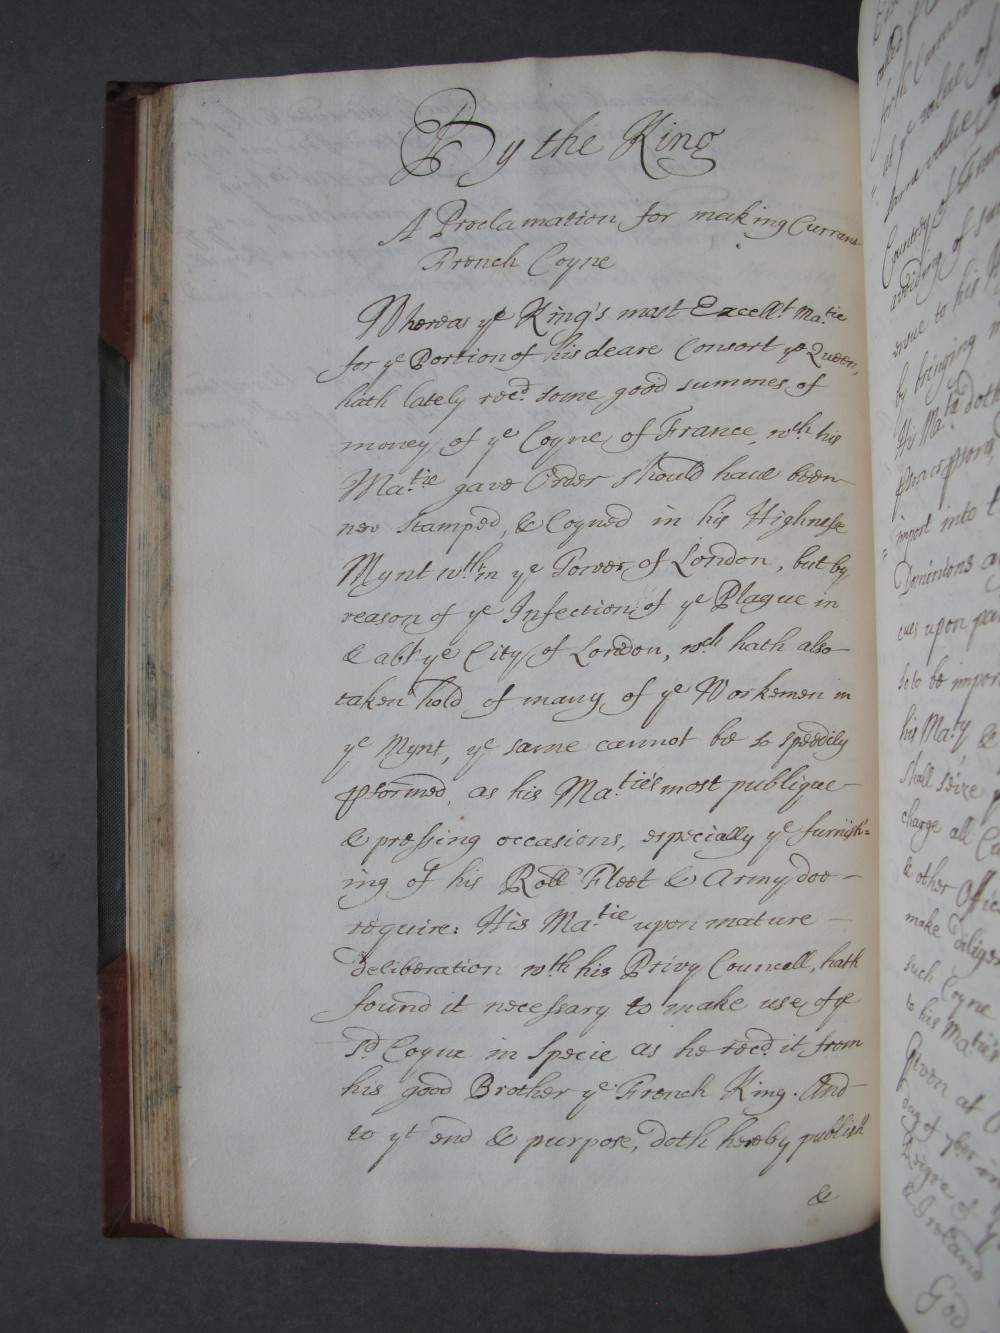 By the King
A Proclamation for making Currant
French Coyne
Whereas ye King's most Excellt Ma:tie
for ye Portion of his deare Consort ye Queen,
hath lately recd. some good summes of
money of ye Coyne of France, wch his
Ma:tie gave Order should have been
new stamped, & Coyned in his Highnesse
Mynt wth:in ye Tower of London, but by
reason of ye Infection of ye Plague in
& abt ye City of London, wch hath also
taken hold of many of ye Workemen in
ye Mynt, ye same cannot be so speedily
pformed, as his Ma:ties most publique
& pressing occasions, especially ye furnish=
ing of his Roll Fleet & Army doe
require: His Ma:tie upon mature
deliberation wth his Privy Councell, hath
found it necessary to make use of ye
sd Coyne in Specie as he recd. it from
his good Brother ye French King. And
to yt end & purpose, doth hereby publish
&
at ye value of
same value
avoiding of
by bringing
His Ma:tie doth
import into
Dominions
upon
so to be impor
his Ma:ty &
shall seize
charge all
& other Offic
make diligen
such Coyne
to his Ma:ties
Given at
day of 7ber in
Reigne of
& Ireland
God